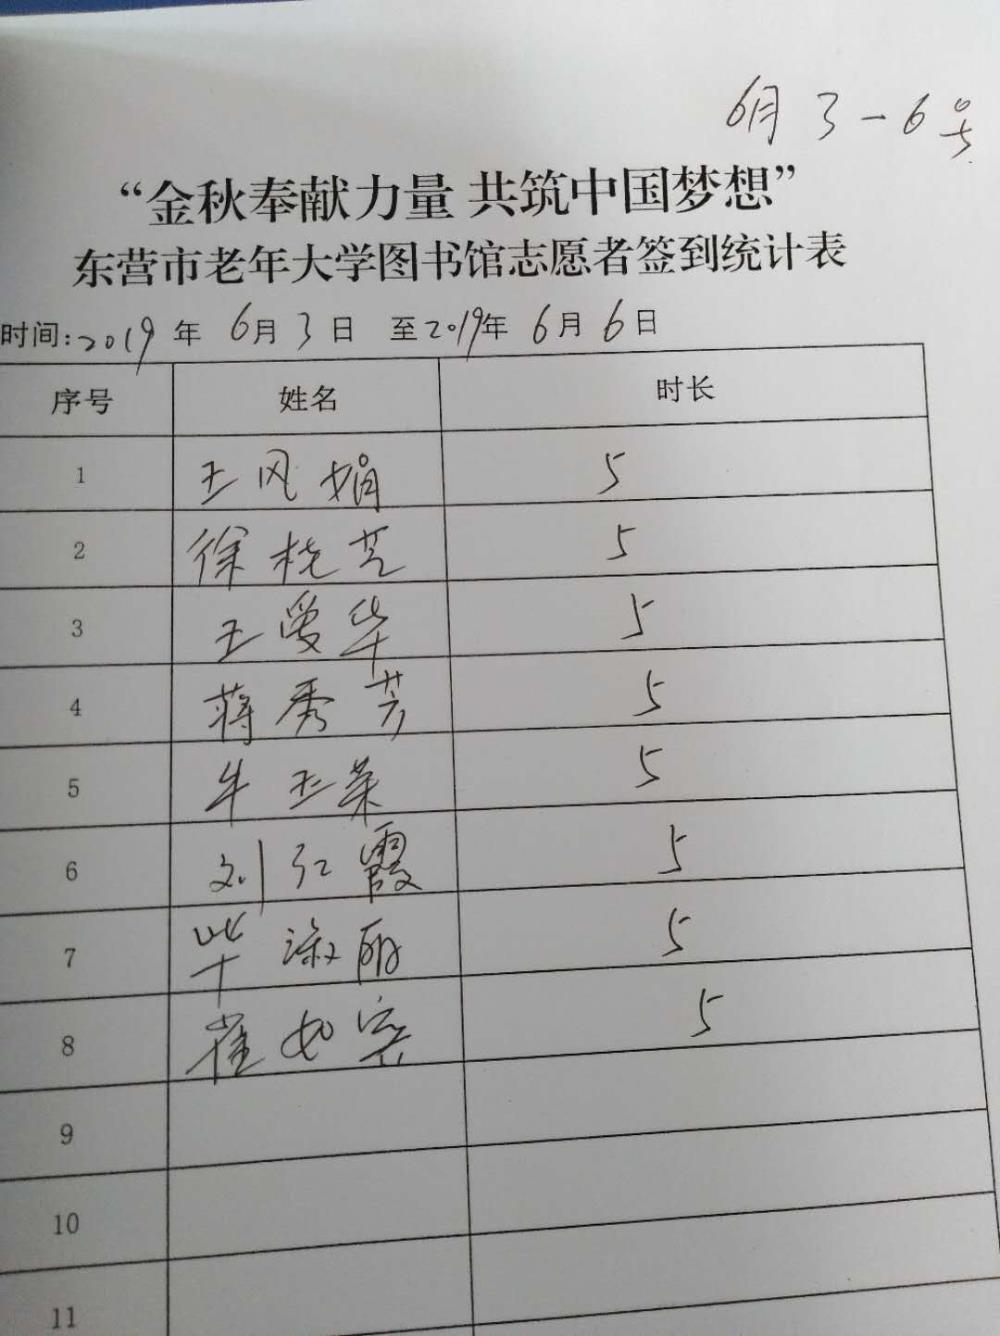 6月3-6号
“金秋奉献力量 共筑中国梦想”
东营市老年大学图书馆志愿者签到统计表
时间:2019年6月3日 至2019年6月6日
序号 姓名 时长
1 王风娟 5
2 徐桂芝 5
3 王爱华 5
4 蒋秀芳 5
5 牛玉荣 5
6 刘红霞 5
7 毕淑丽 5
8 崔如 5
9
10
11